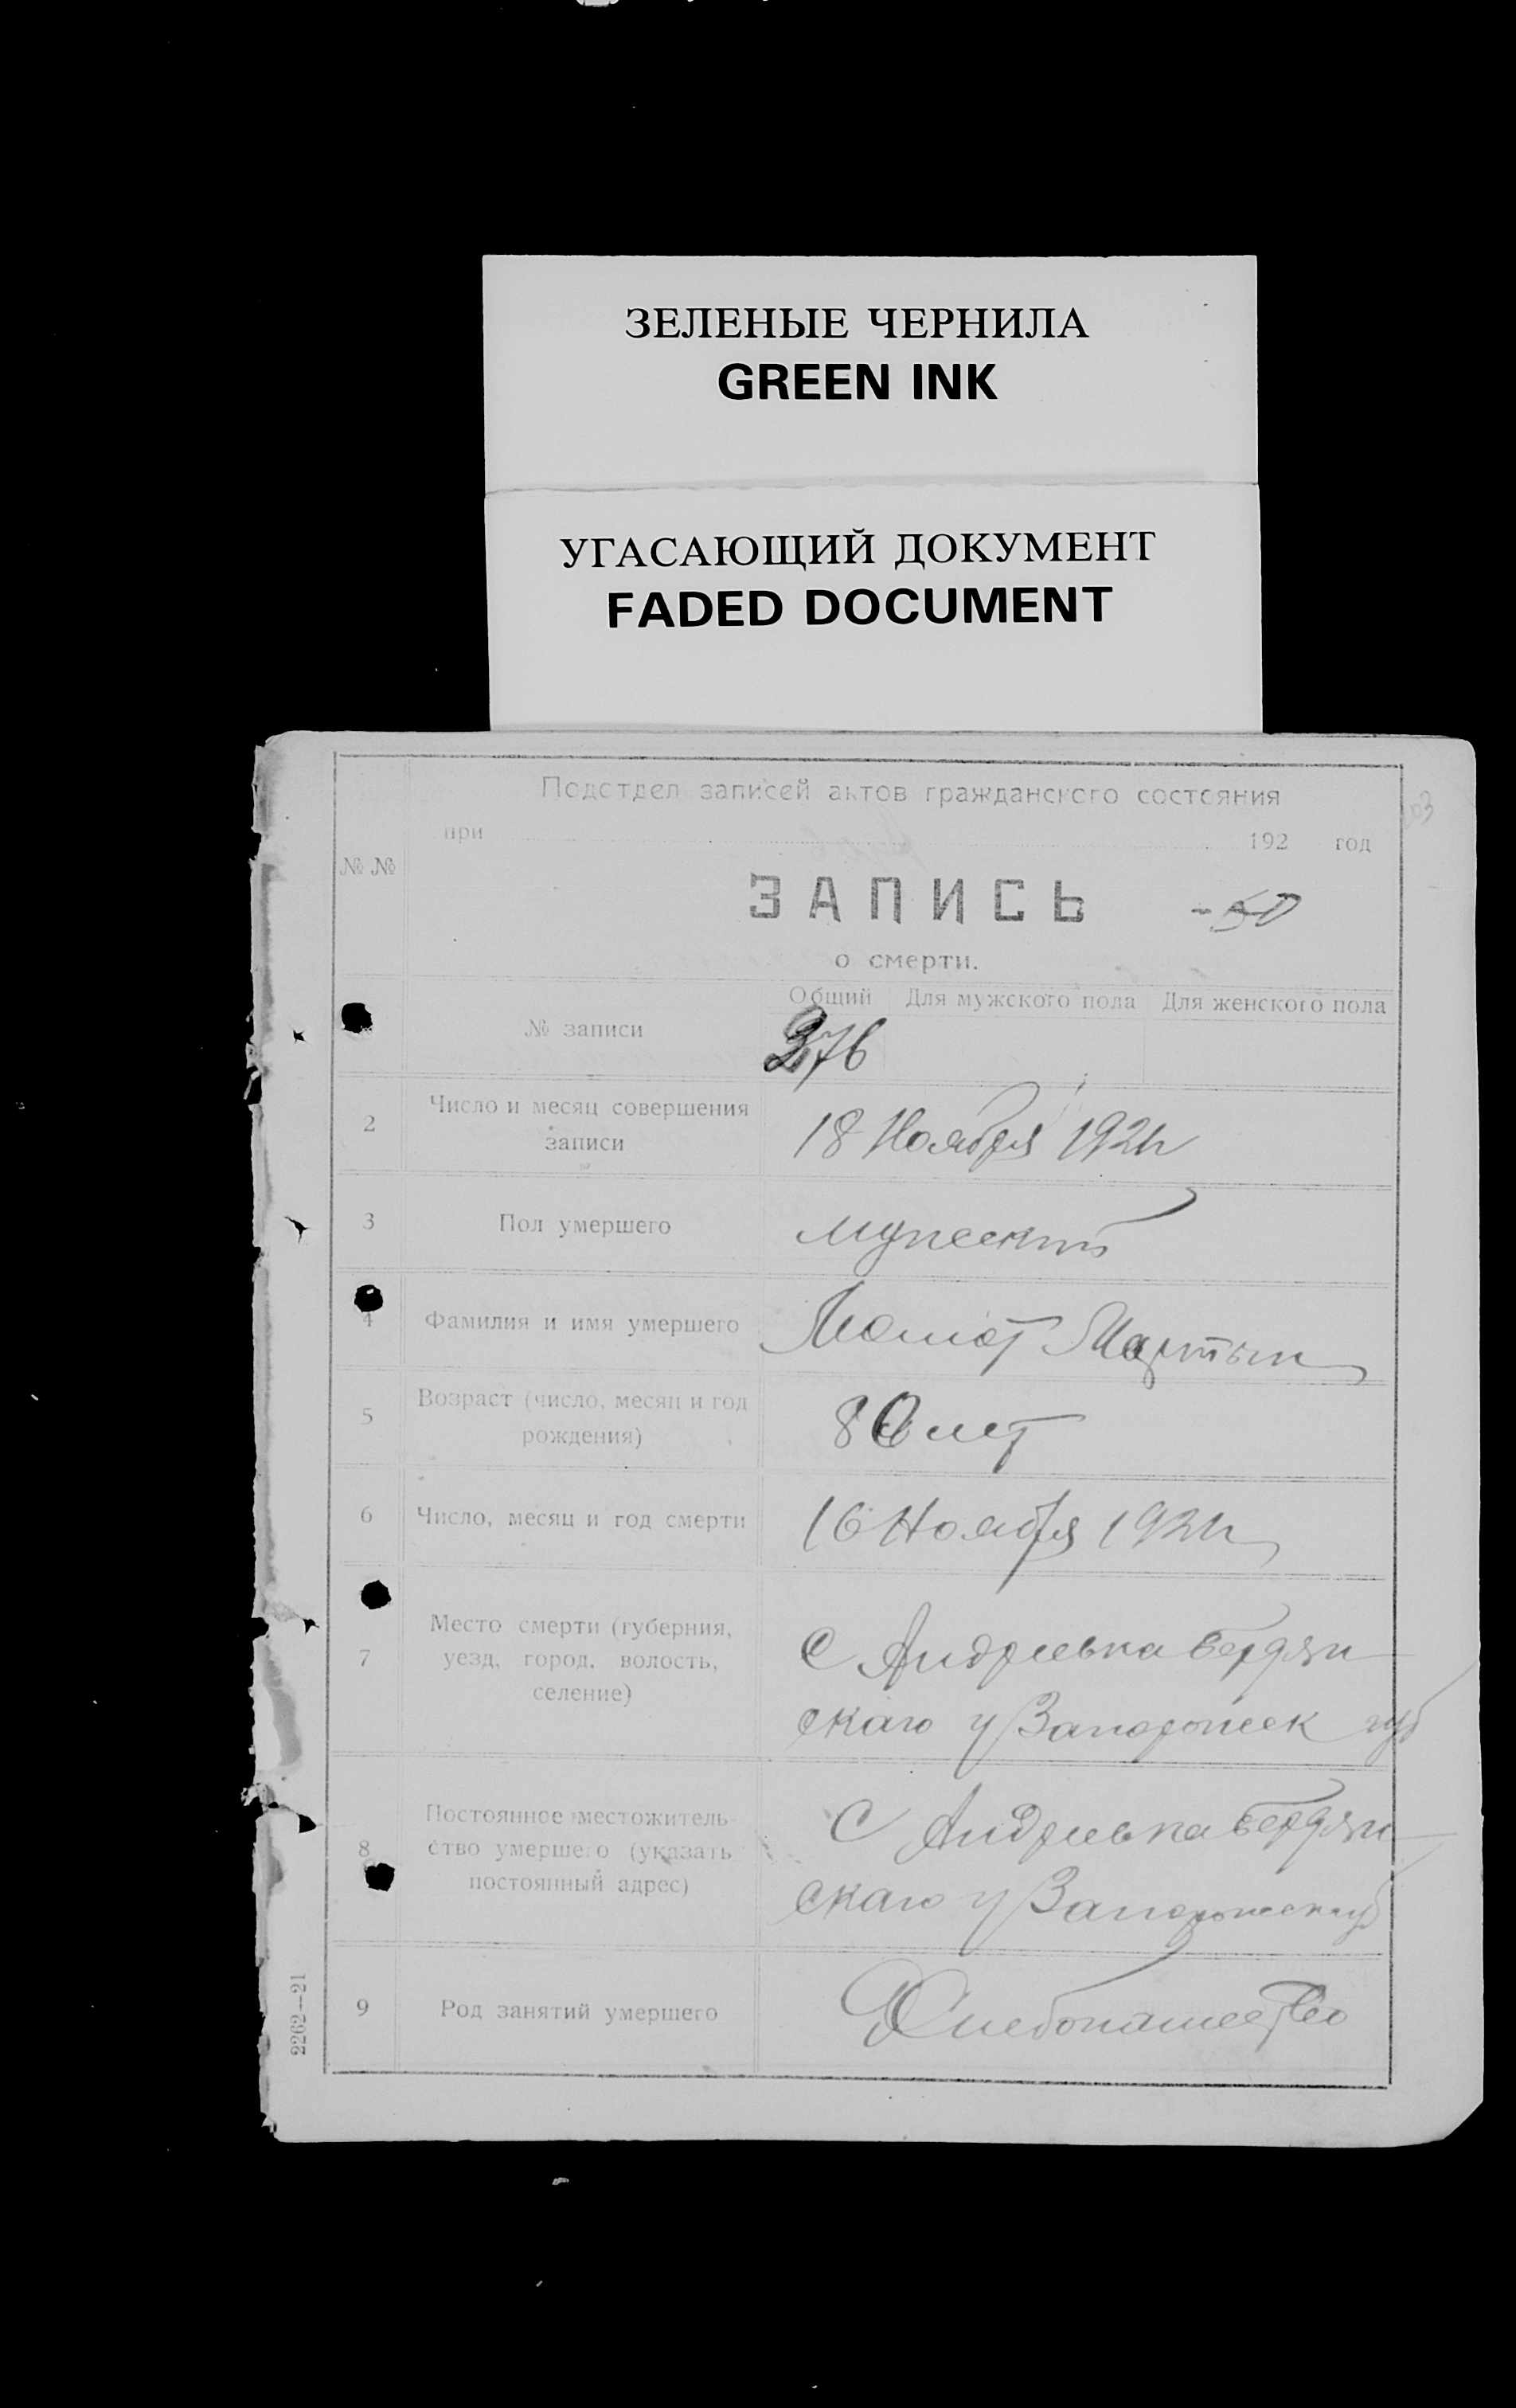 ЗЕЛЕНЫЕ ЧЕРНИЛА
GREEN INK
УГАСАЮЩИЙ ДОКУМЕНТ
FADED DOCUMENT
Подотдел записей актов гражданского состояния
при 192 год
№ №
ЗАПИСЬ
о смерти.
Общий Для мужского пола Для женского пола
№ записи
276
2 Число и месяц совершения
записи
18 Ноября 192
3 Пол умершего
мужеский
4 Фамилия и имя умершего
Мартын
5 Возраст (число, месяц и год
рождения)
80 лет
6 Число, месяц и год смерти
16 Ноября 192
7 Место смерти (губерния,
уезд, город, волость,
селение)
С Андреевка Бердян
скаго у Запорожск губ
8 Постоянное местожитель-
ство умершего (указать
постоянный адрес)
С Андреевка Бердян
скаго у Запорожск губ
9 Род занятий умершего
Хлебопашество
2262—21